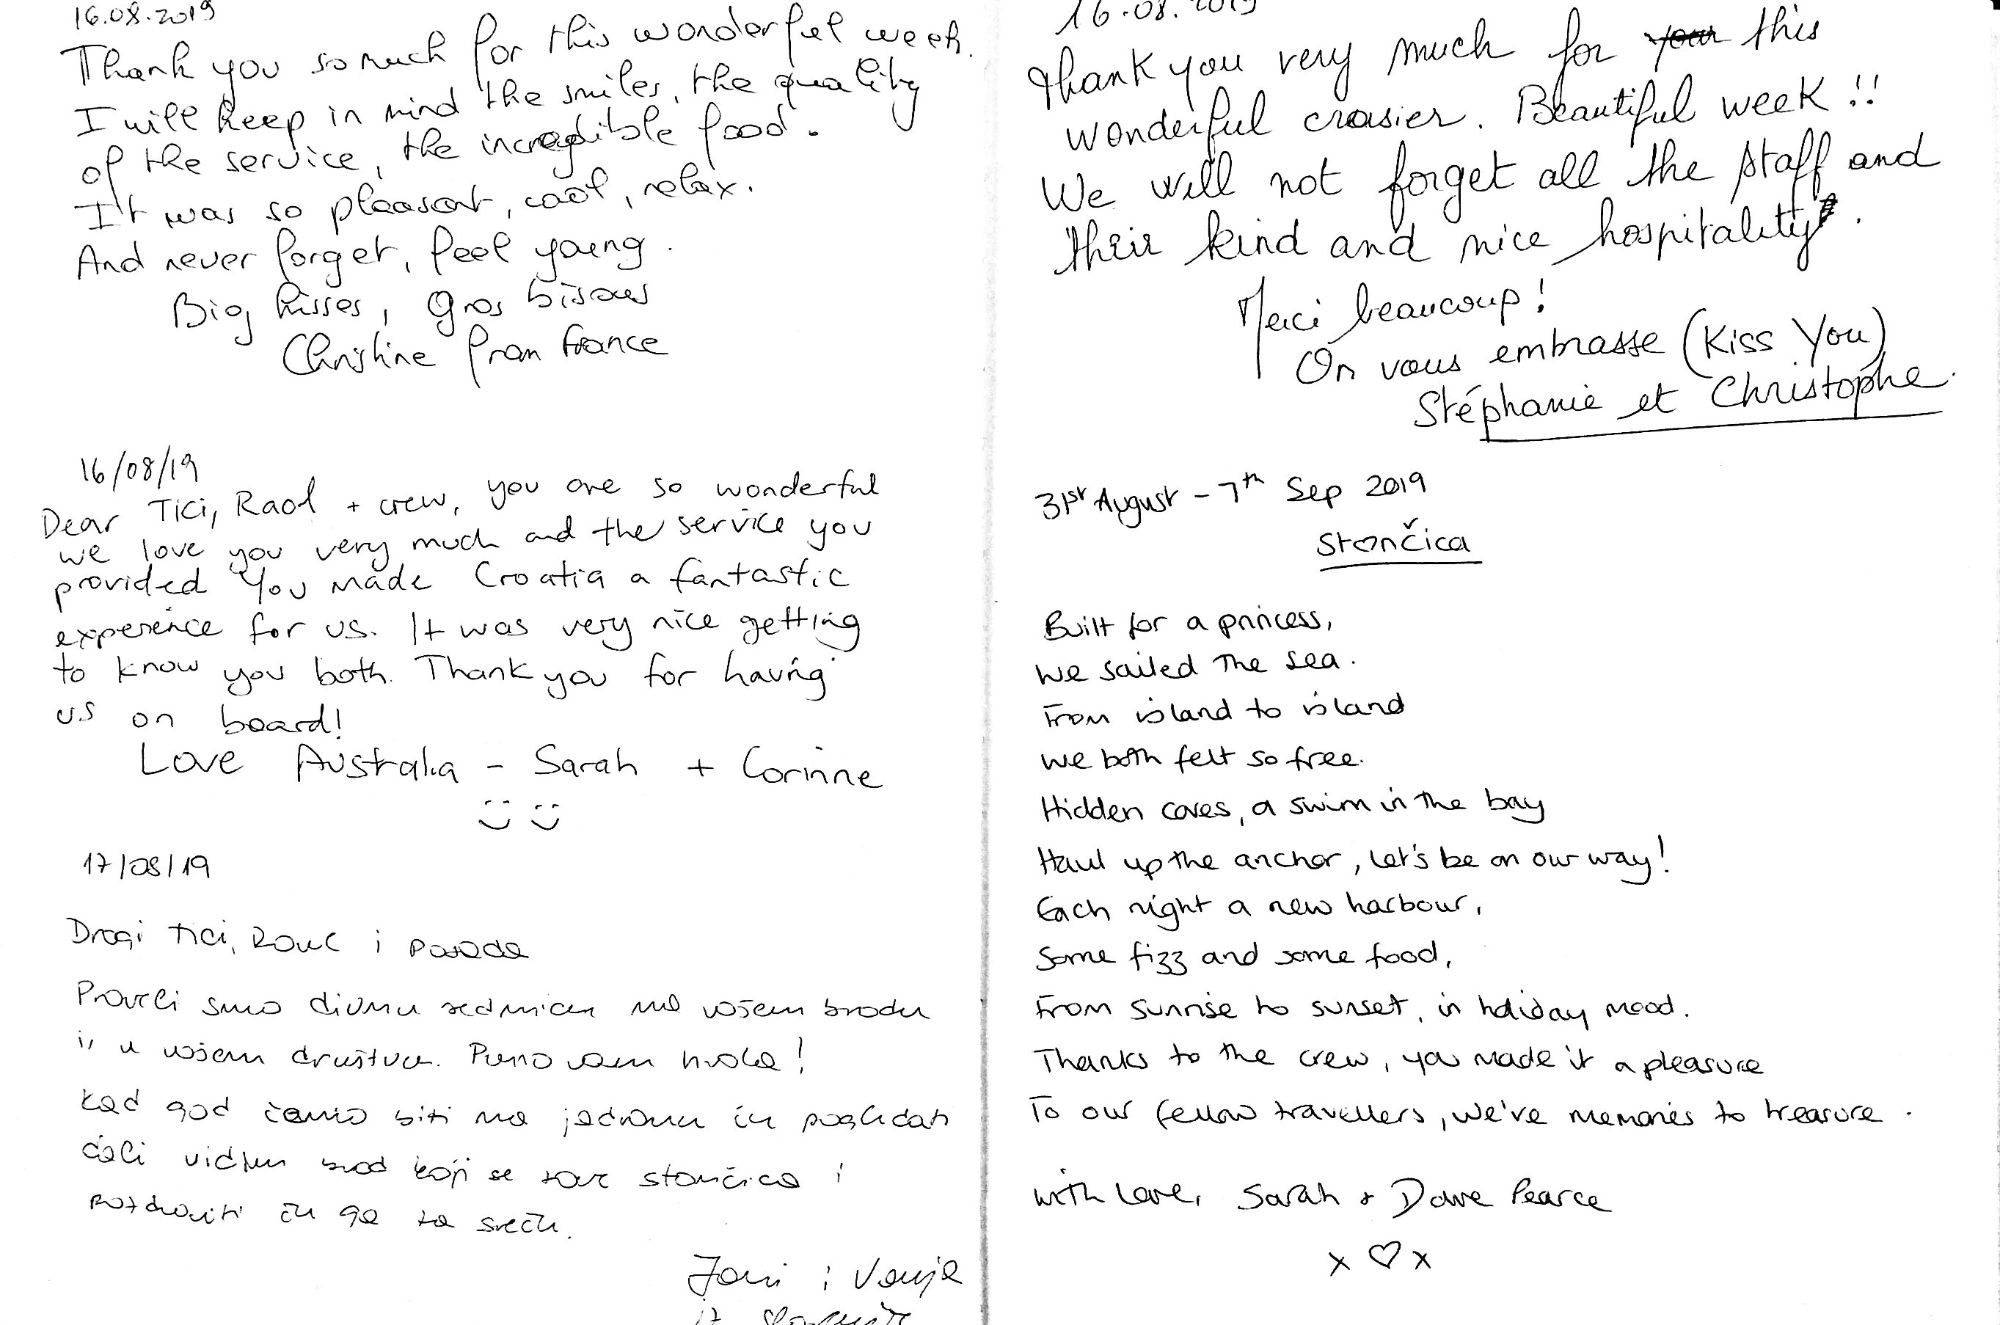 16.08.2019
Thank you so much for this wonderful week.
I will keep in mind the smiles, the quality
of the service, the incredible food.
It was so pleasant, cool, relax.
And never forget, feel young.
Big kisses, Gros bisous
Christine from France
16/08/19
Dear Tici, Raol + crew, you are so wonderful
we love you very much and the service you
provided You made Croatia a fantastic
experience for us. It was very nice getting
to know you both. Thank you for having
us on board!
Love Australia - Sarah + Corinne
17/08/19
Dragi Tici, Roul i posada
Proveli smo divnu sedmicu na vašem brodu
i u vašem društvu. Puno vam hvala!
Kad god ćemo biti na jadranu ću pogledati
dali vidim brod koji se zove stončica i
pozdraviti ću ga za sreću.
i Vanja
iz
16.08.2019
Thank you very much for your this
wonderful croasier. Beautiful week !!
We will not forget all the staff and
their kind and nice hospitality.
Merci beaucoup!
On vous embrasse (Kiss You)
Stéphanie et Christophe.
31st August - 7th Sep 2019
Stončica
Built for a princess,
we sailed the sea.
From island to island
we both felt so free.
Hidden coves, a swim in the bay
Haul up the anchor, let's be on our way!
Each night a new harbour,
Some fizz and some food,
From sunrise to sunset, in holiday mood.
Thanks to the crew, you made it a pleasure
To our fellow travellers, we've memories to treasure.
with love, Sarah + Dave Pearce
x ♡ x